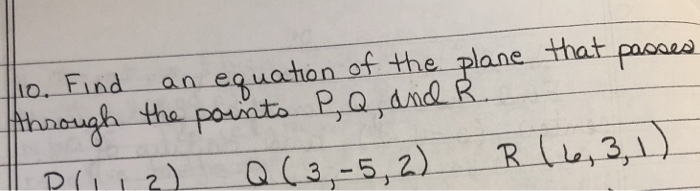 10. Find an equation of the plane that passes
through the points P, Q, and R.
P(1,1,2) Q(3,-5,2) R(6,3,1)